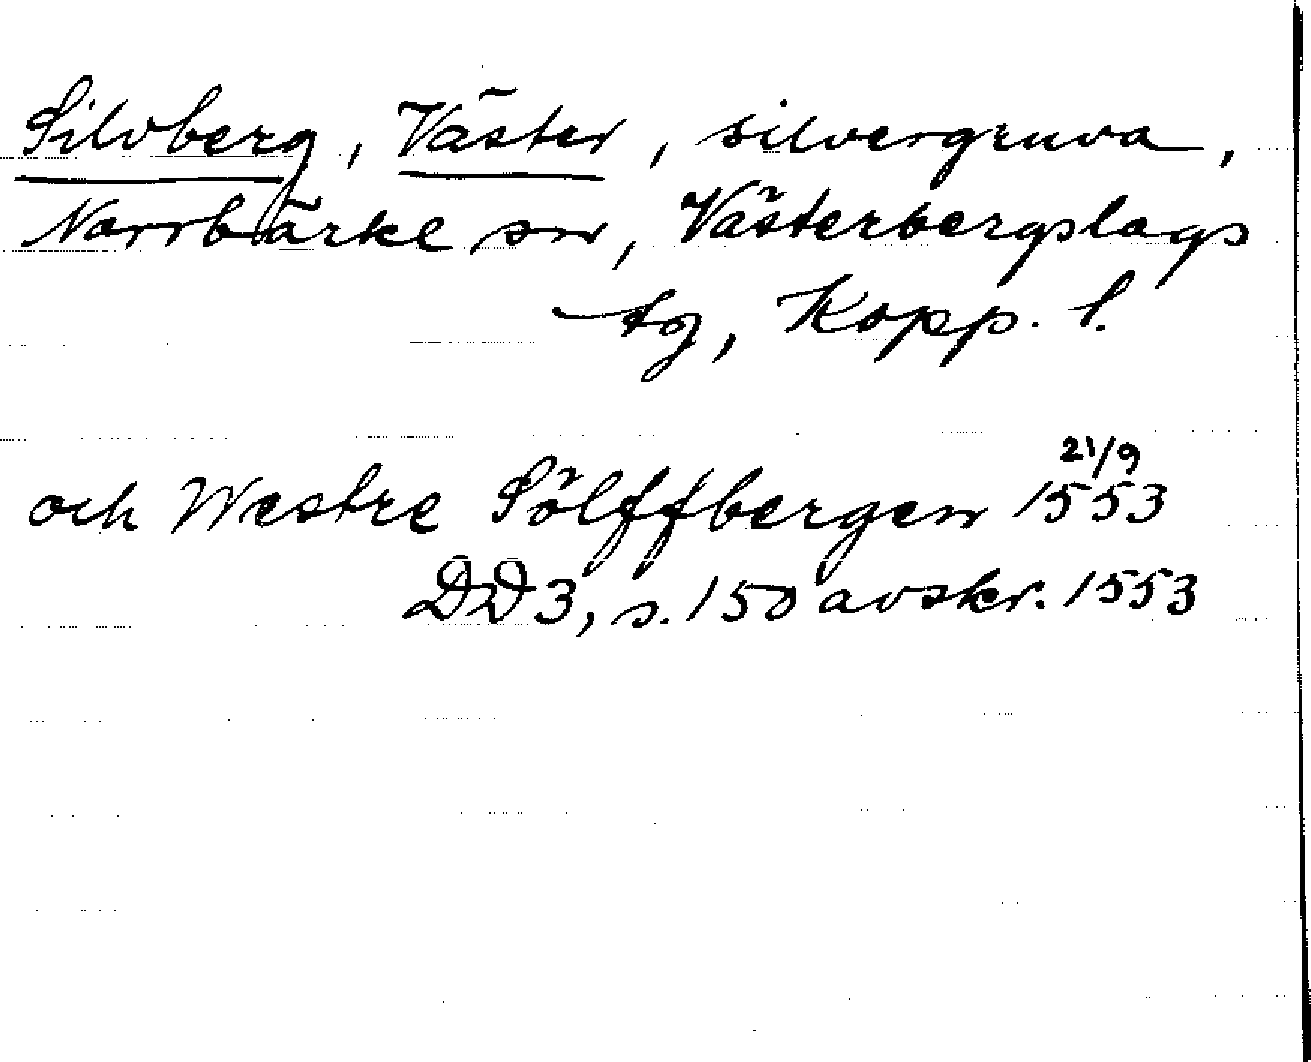 Silvberg, Väster, silvergruva,
Norrbärke sn, Västerbergslags
tg, Kopp. l.
21/9
och Westre Sölffbergen 1553
DD3, s. 150 avskr. 1553